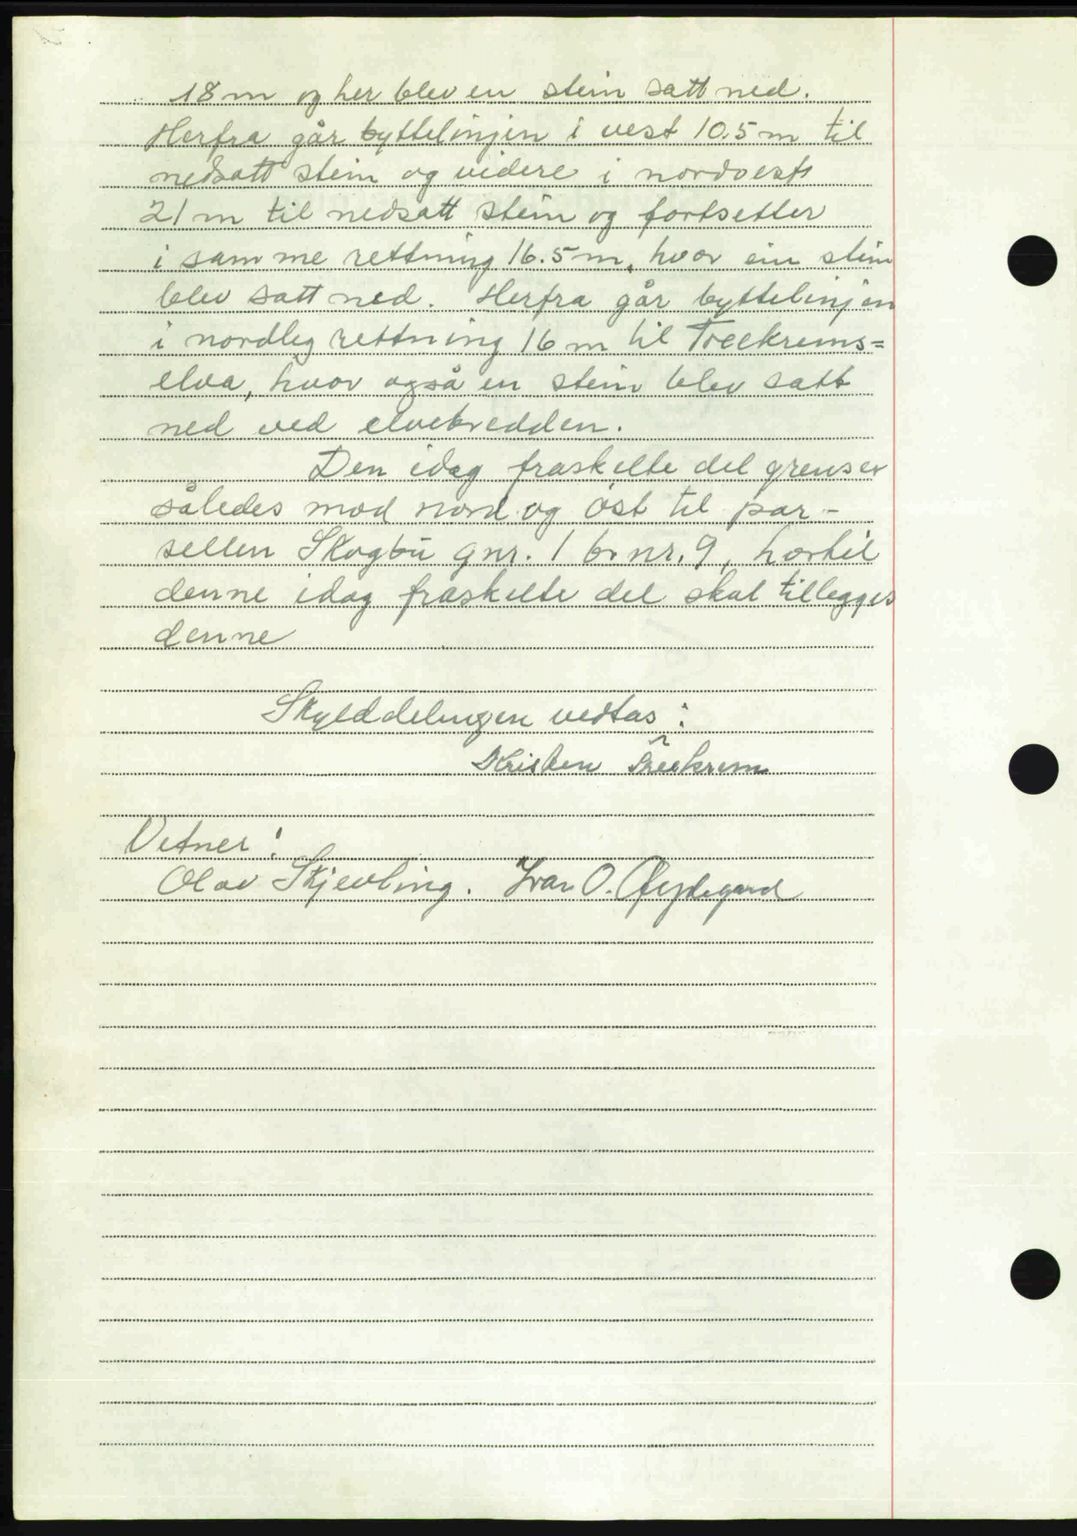 18 m og her blev en stein satt ned.
Herfra går byttelinjen i vest 10.5 m til
nedsatt stein og videre i nordvest
21 m til nedsatt stein og fortsetter
i samme rettning 16.5 m, hvor ein stein
blev satt ned. Herfra går byttelinjen
i nordleg rettning 16 m til Treekrems=
elva, hvor også en stein blev satt
ned ved elvebredden.
Den idag fraskelte del grenser
således mod nord og öst til par-
sellen Skogbu gnr. 1 br nr. 9, hvortil
denne idag fraskelte del skal tillegges
denne
Skylddelingen vedtas:
Kristen Treekrem
Vitner!
Olav Skjevling. Ivar O. Øygard